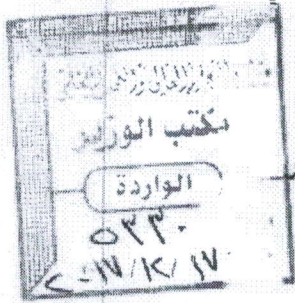 مكتب الوزير
الواردة
٥٣٣٠
٢٠١٧/١٢/١٧